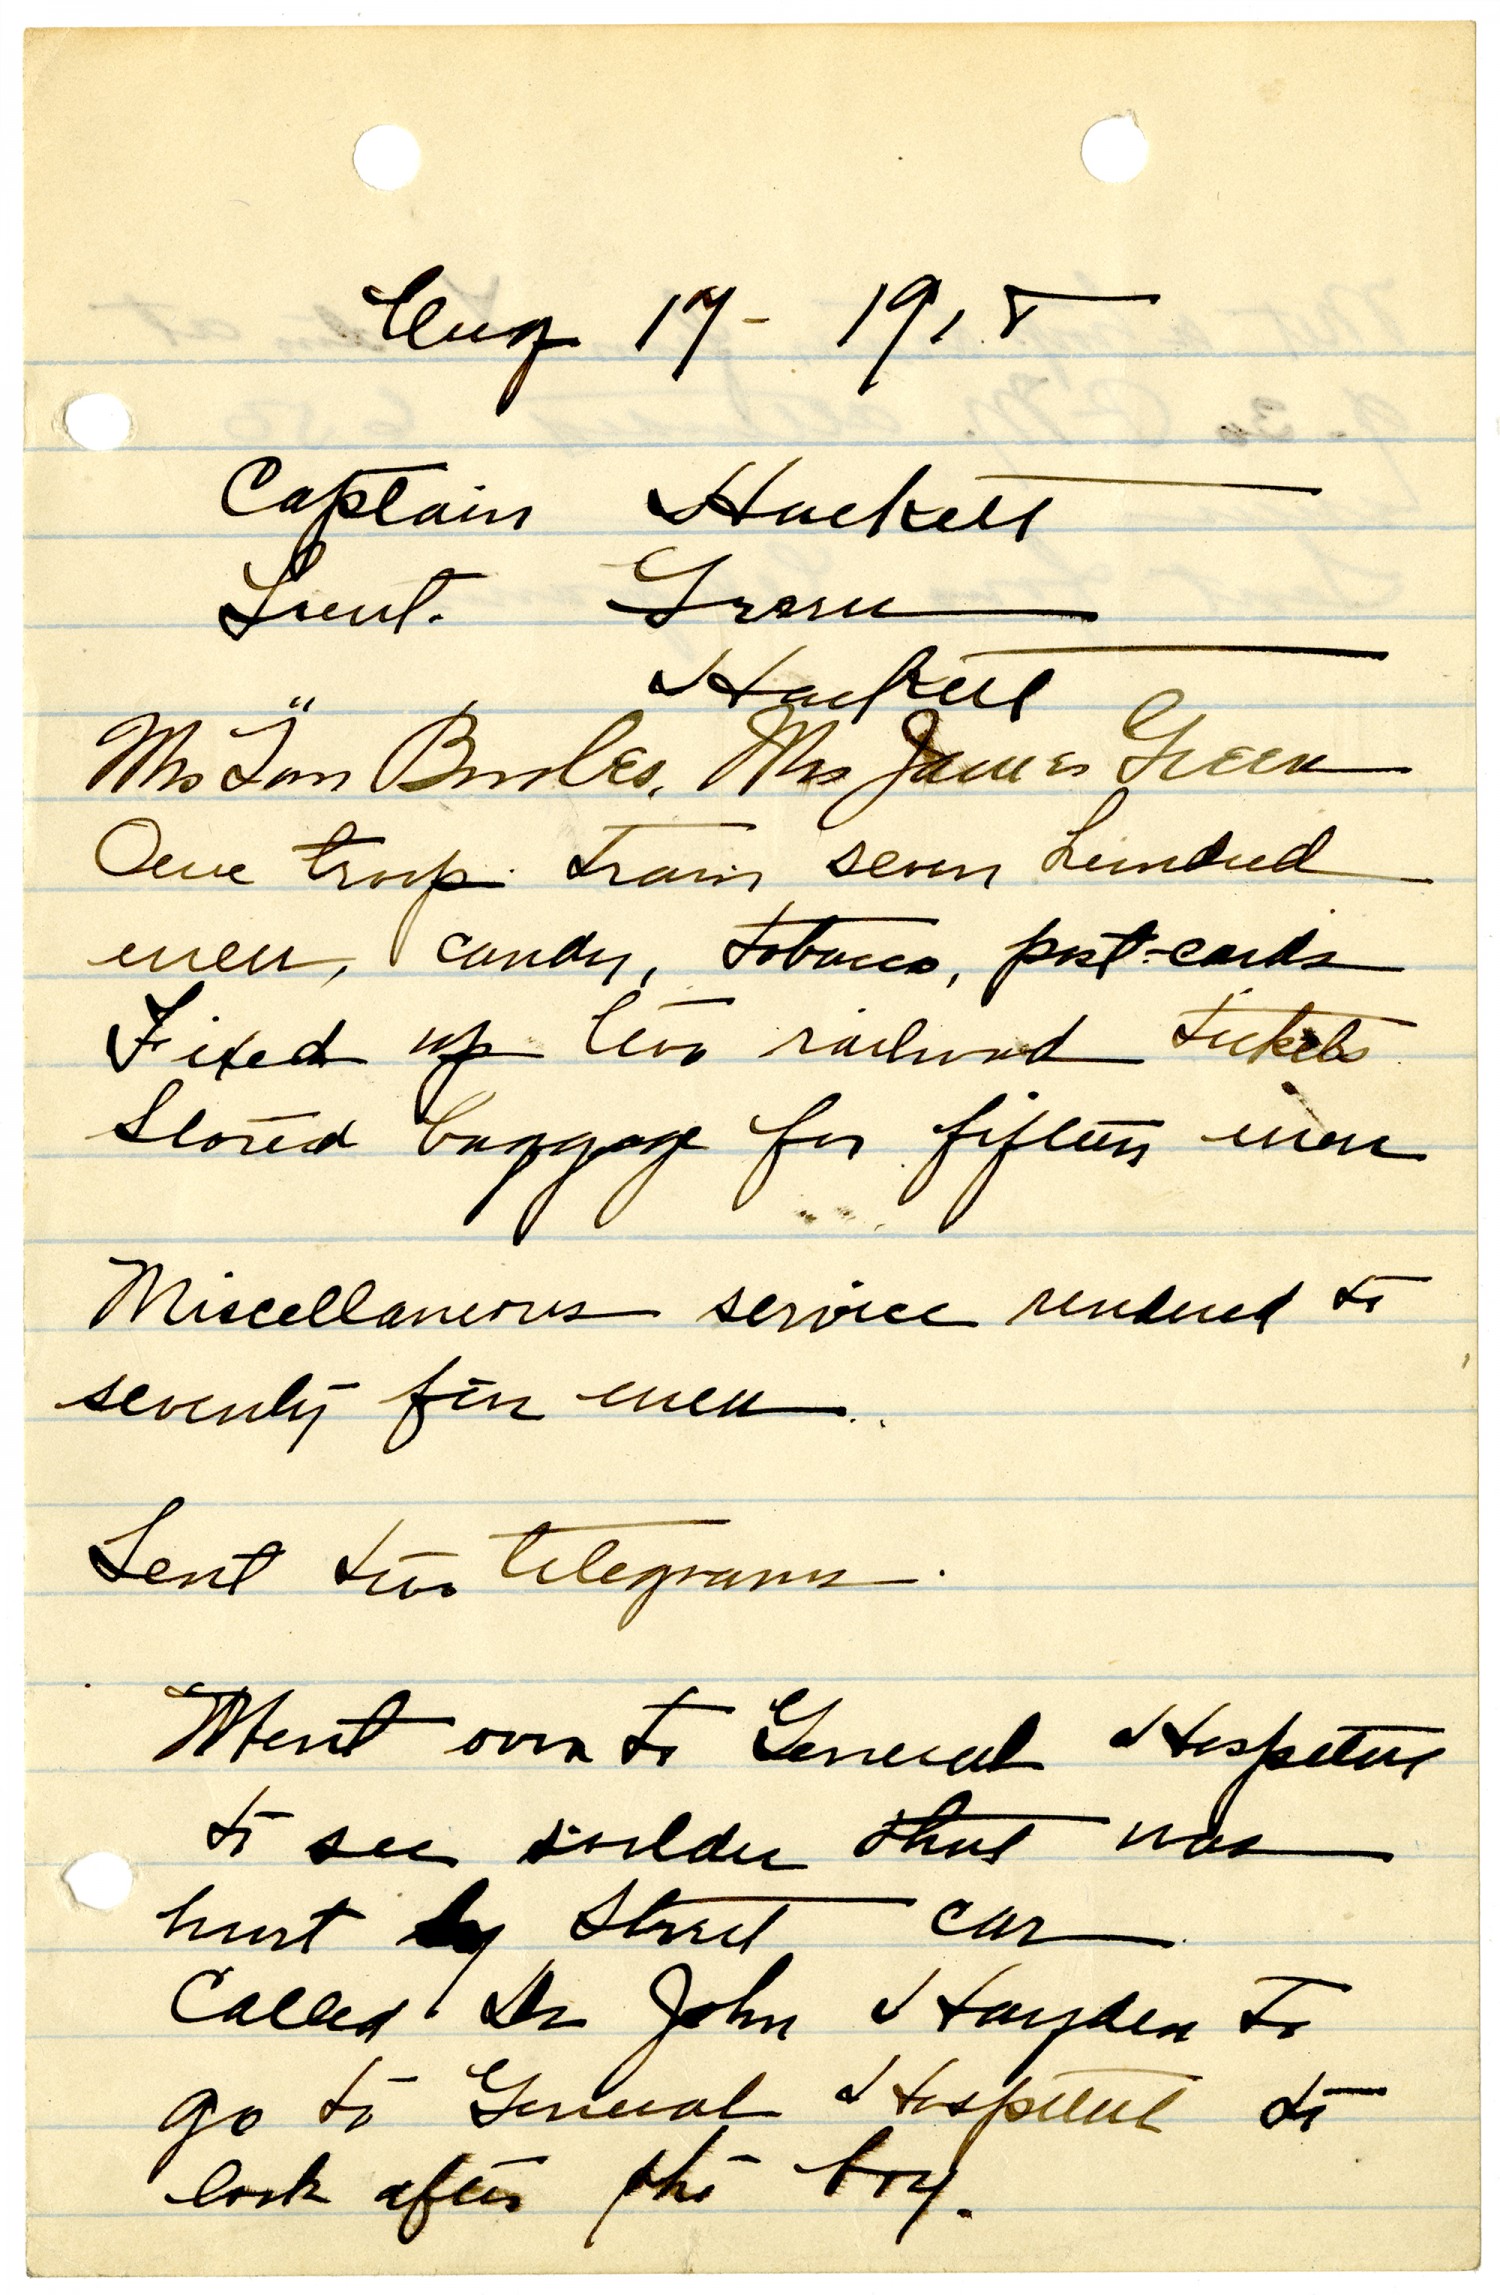 Aug 17 - 1918
Captain Hackett
Lieut. Green
" Hackett
Mrs Bowles, Mrs James Green
One troop train seven hundred
men, candy, tobacco, post-cards
Fixed up two railroad tickets
Stored baggage for fifteen men
Miscellaneous service rendered to
seventy five men.
Sent two telegrams.
Went over to General Hospital
to see soilder that was
hurt by street car
Called Dr John Hayden to
go to General Hospital to
look after the boy.